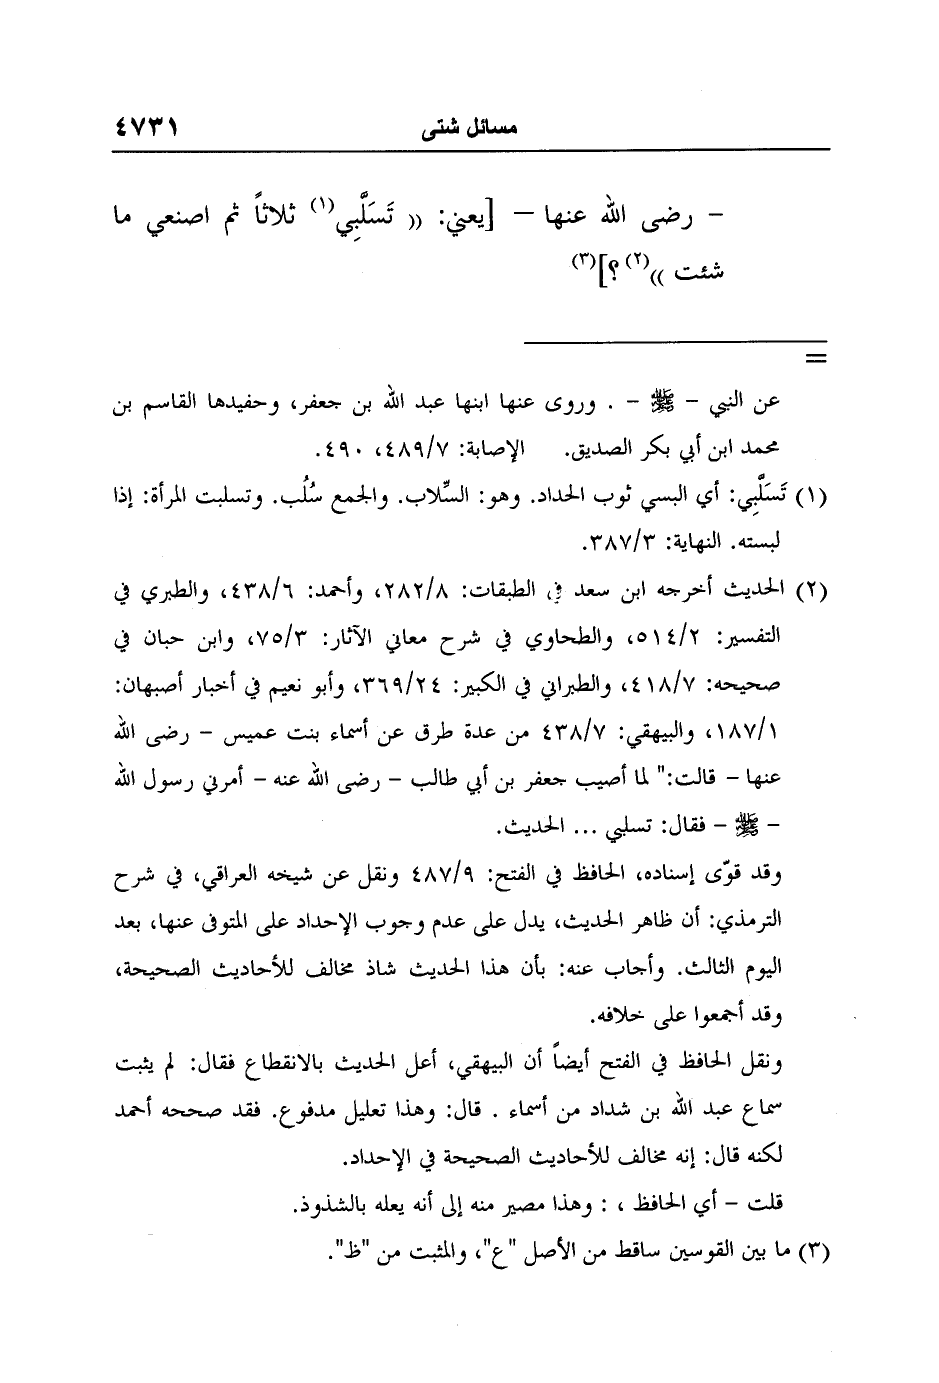 مسائل شتى ٤٧٣١
- رضى الله عنها - [يعني: (( تَسَلَّبِي(١) ثلاثاً ثم اصنعي ما
شئت ))(٢) ؟](٣)
=
عن النبي - ﷺ - . وروى عنها ابنها عبد الله بن جعفر، وحفيدها القاسم بن
محمد ابن أبي بكر الصديق. الإصابة: ٤٨٩/٧، ٤٩٠.
(١) تَسَلَّبِي: أي البسي ثوب الحداد. وهو: السِّلاب. والجمع سُلُب. وتسلبت المرأة: إذا
لبسته. النهاية: ٣٨٧/٣.
(٢) الحديث أخرجه ابن سعد في الطبقات: ٢٨٢/٨، وأحمد: ٤٣٨/٦، والطبري في
التفسير: ٥١٤/٢، والطحاوي في شرح معاني الآثار: ٧٥/٣، وابن حبان في
صحيحه: ٤١٨/٧، والطبراني في الكبير: ٣٦٩/٢٤، وأبو نعيم في أخبار أصبهان:
١٨٧/١، والبيهقي: ٤٣٨/٧ من عدة طرق عن أسماء بنت عميس - رضى الله
عنها - قالت:" لما أصيب جعفر بن أبي طالب - رضى الله عنه - أمرني رسول الله
- ﷺ - فقال: تسلبي ... الحديث.
وقد قوّى إسناده، الحافظ في الفتح: ٤٨٧/٩ ونقل عن شيخه العراقي، في شرح
الترمذي: أن ظاهر الحديث، يدل على عدم وجوب الإحداد على المتوفى عنها، بعد
اليوم الثالث. وأجاب عنه: بأن هذا الحديث شاذ مخالف للأحاديث الصحيحة،
وقد أجمعوا على خلافه.
ونقل الحافظ في الفتح أيضاً أن البيهقي، أعل الحديث بالانقطاع فقال: لم يثبت
سماع عبد الله بن شداد من أسماء . قال: وهذا تعليل مدفوع. فقد صححه أحمد
لكنه قال: إنه مخالف للأحاديث الصحيحة في الإحداد.
قلت - أي الحافظ ، : وهذا مصير منه إلى أنه يعله بالشذوذ.
(٣) ما بين القوسين ساقط من الأصل "ع"، والمثبت من "ظ".